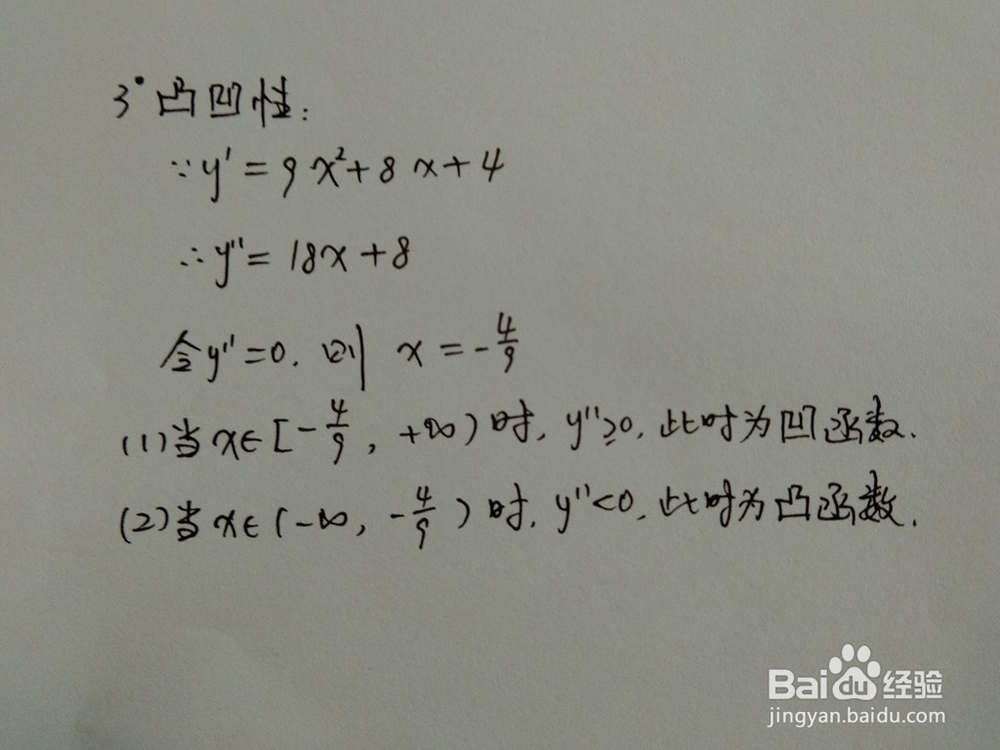 3° 凸凹性:
∵y' = 9x²+8x+4
∴y''= 18x+8
令y''=0. 则 x=-4/9
(1)当x∈[-4/9, +∞)时, y''≥0, 此时为凹函数.
(2)当x∈(-∞, -4/9)时, y''<0, 此时为凸函数.
Baidu经验
jingyan.baidu.com